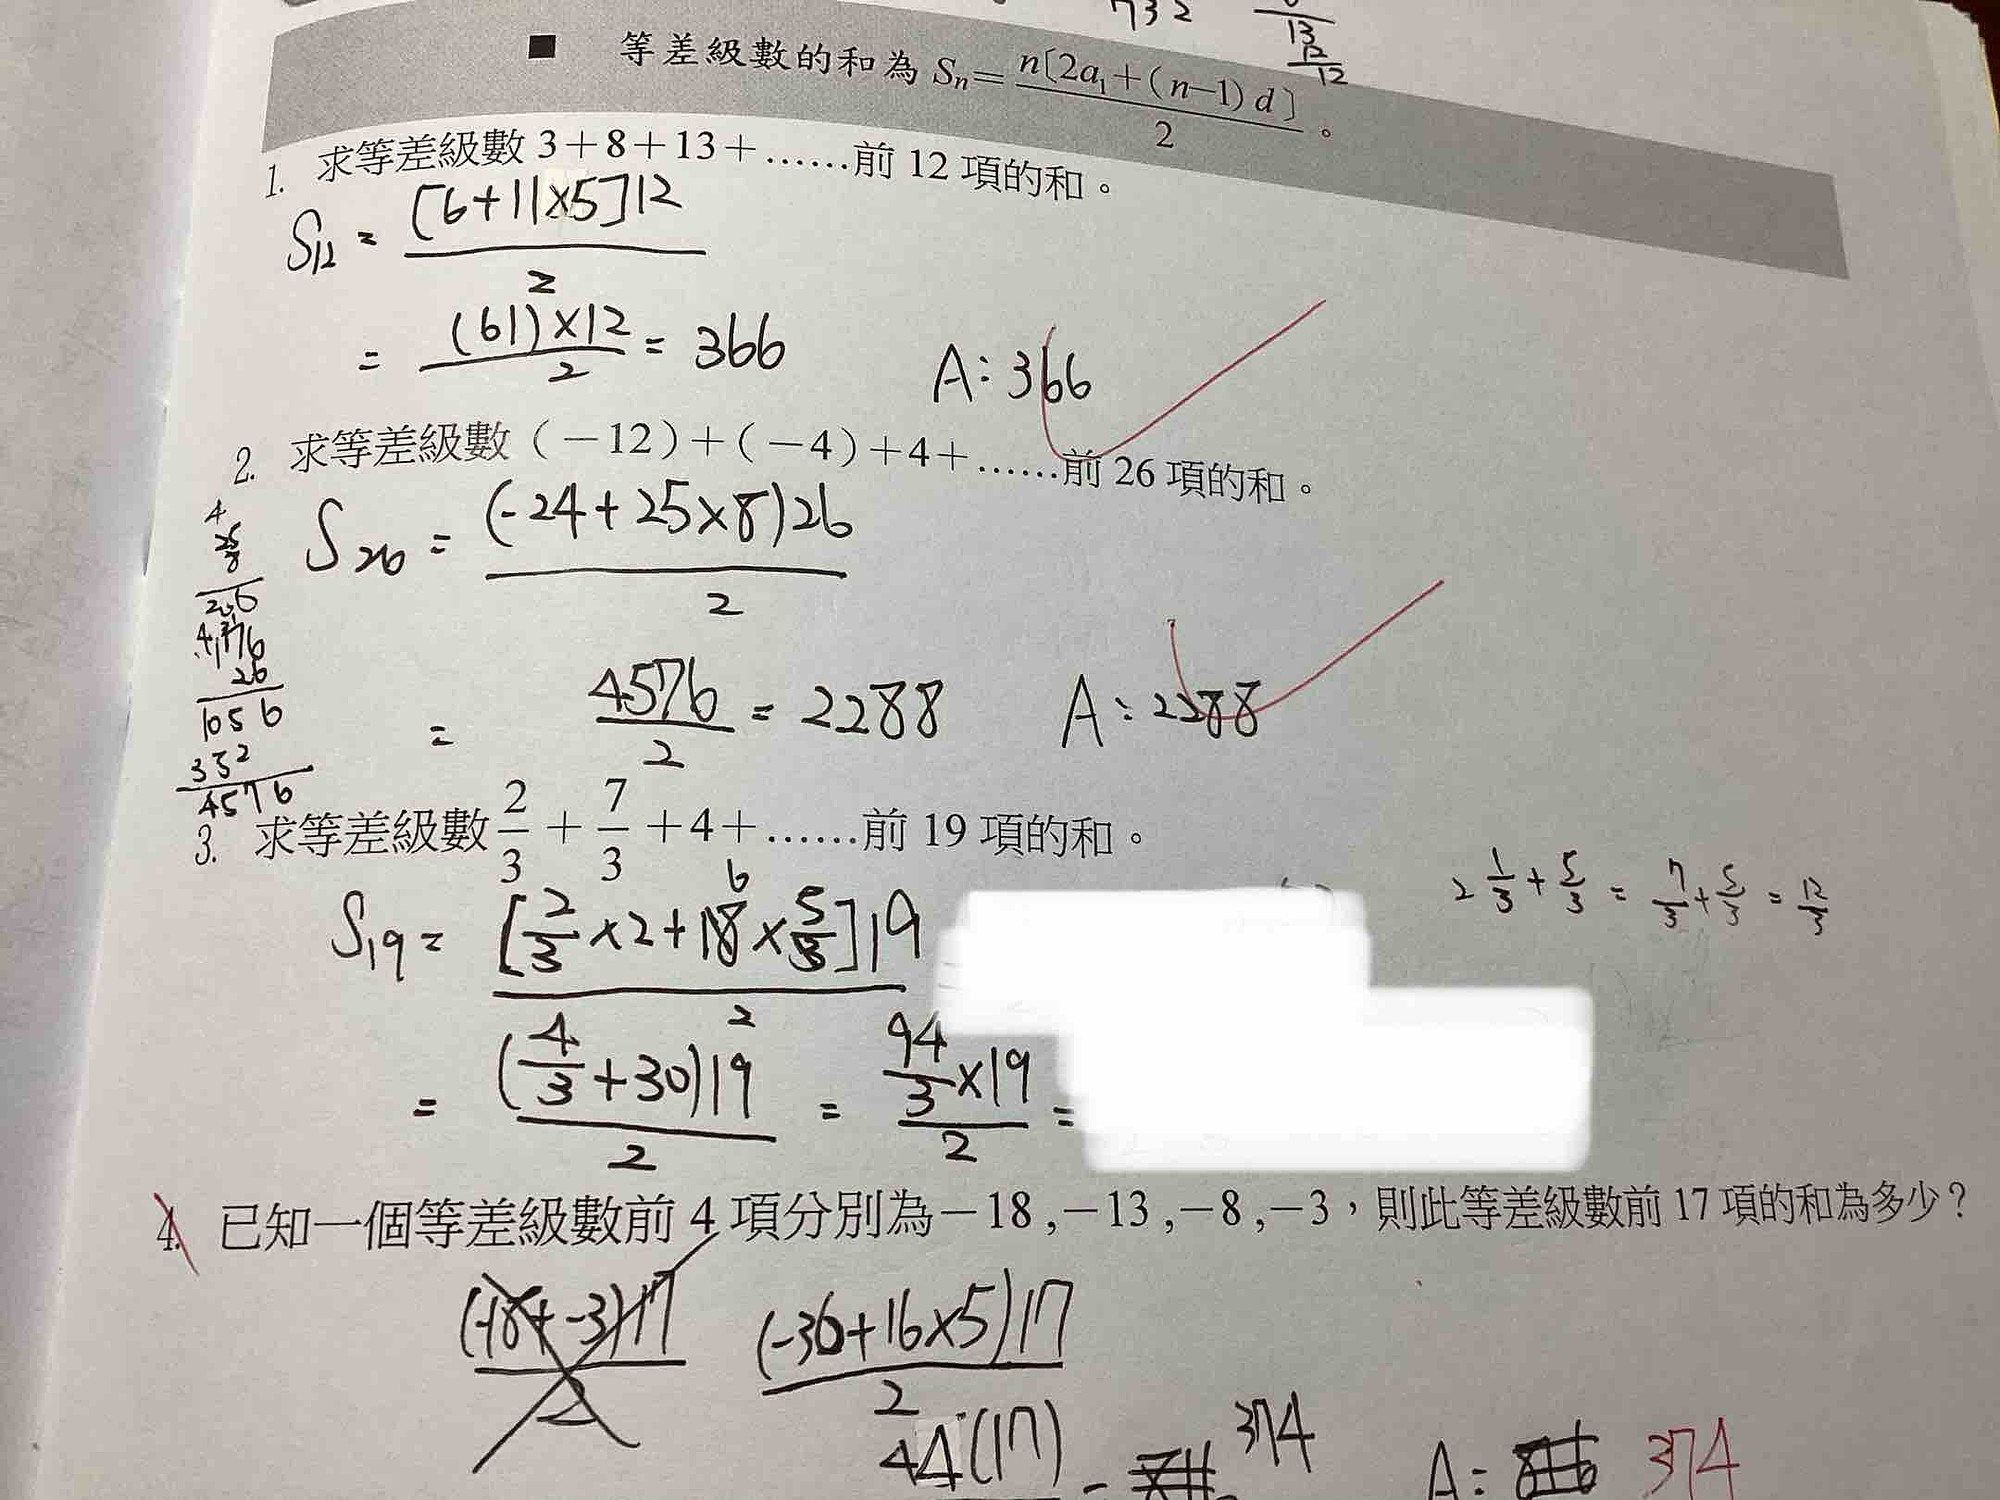 732
13
12
12
■ 等差級數的和為 Sn = n〔2a₁+(n−1)d〕/2 。
1. 求等差級數 3+8+13+……前 12 項的和。
S12 = [6+11×5]12 / 2
= (61)×12 / 2 = 366 A:366
2. 求等差級數(−12)+(−4)+4+……前 26 項的和。
S26 = (-24+25×8)26 / 2
= 4576 / 2 = 2288 A:2288
26
1056
352
4576
3. 求等差級數 2/3 + 7/3 +4+……前 19 項的和。
6
S19 = [2/3 ×2+18×5/3]19 / 2
2 1/3 + 5/3 = 7/3 + 5/3 = 12/3
= (4/3 +30)19 / 2 = 94/3 ×19 / 2 =
4. 已知一個等差級數前 4 項分別為−18 ,−13 ,−8 ,−3,則此等差級數前 17 項的和為多少?
(-18+-3)17 / 2 (-36+16×5)17 / 2
44(17) = 374 A: 374